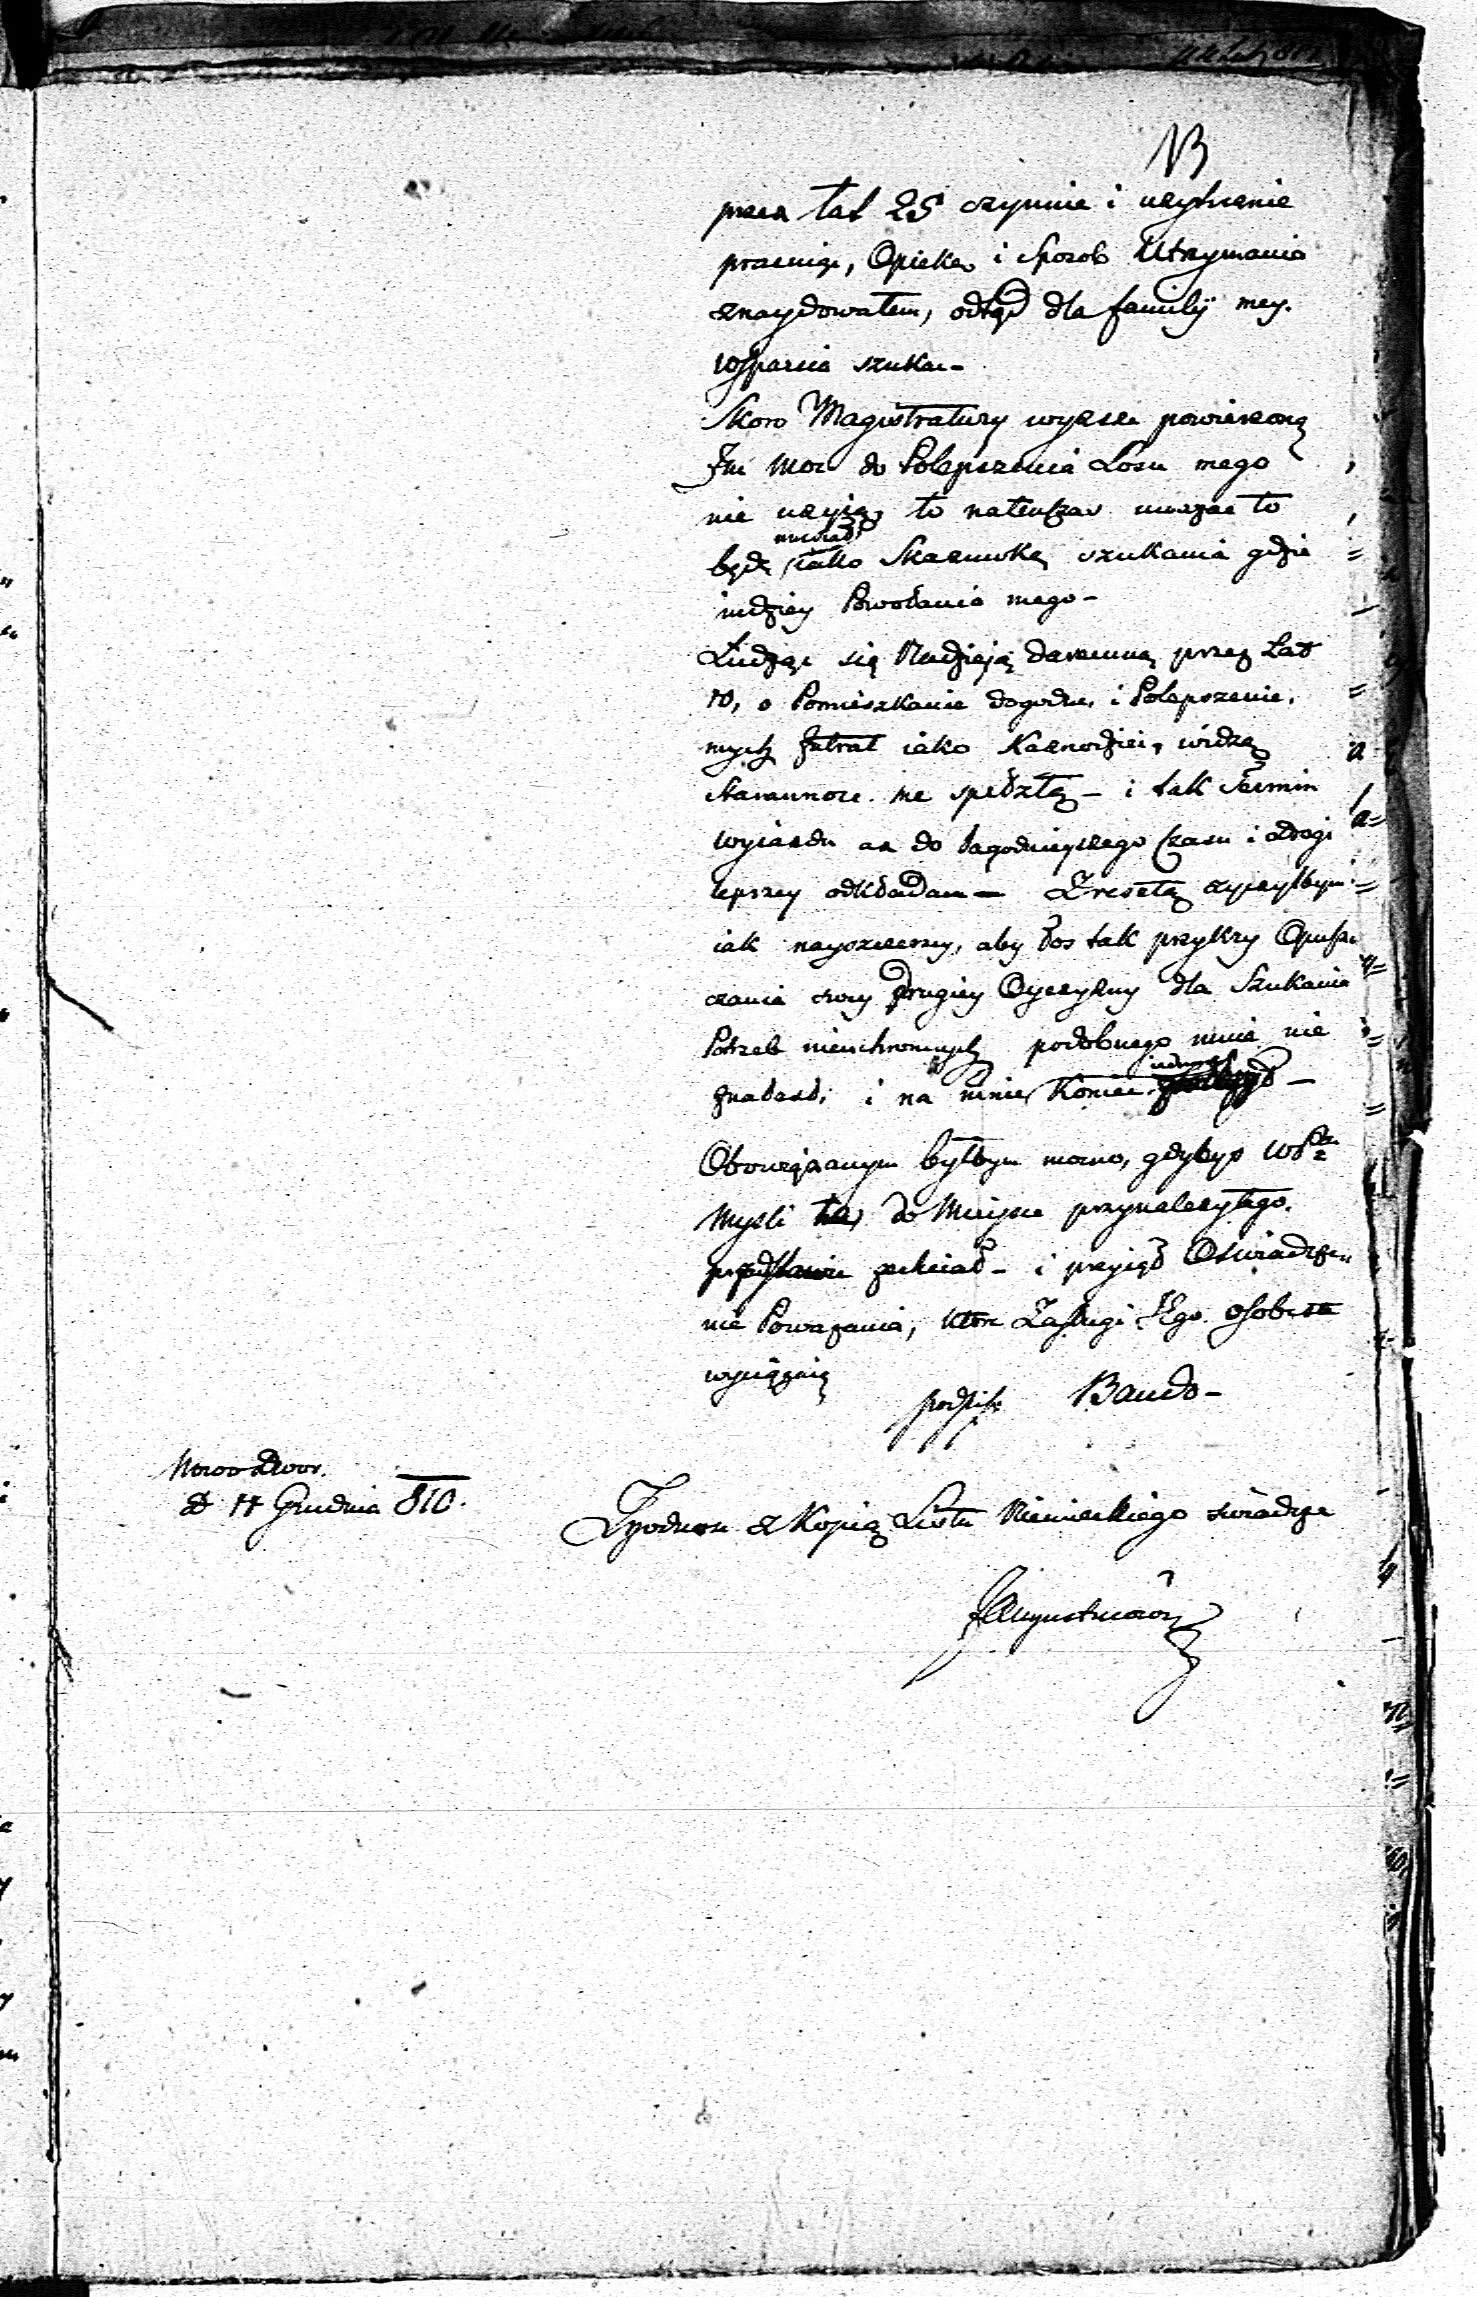 13
przez lat 25 czynnie i użytecznie
pracuiąc, Opiekę i sposob Utrzymania
znaydowałem, odtąd dla familij mey.
wsparcia szukac –
Skoro Magistratury wyższe powierzoną
Im moc do Polepszenia Losu mego
nie użyią, to natenczas uważac to
będę musiał, iako Skazuwkę szukania gdzie
indziey Powołania mego –
Łudząc się Nadzieją daremną przez Lat
10, o Pomieszkanie dogodne, i Polepszenie,
mych
iako Kaznodziei, widzę
Starannosc me spełzłą – i tak Termin
wyiazdu aż do łagodnieyszego Czasu i drogi
lepszey odkładam – Zresztą życzyłbym
iak nayszczerzey, aby los tak przykry Opusz=
czania swey drugiey Oyczyzny dla Szukania
Potrzeb nieuchronnych podobnego mnie nie
znalazł, i na mnie Koniec
Obowiązanym byłbym mocno, gdybys WP
Mysli te, do Mieysca przynależytego.
przedstawic zechciał – i przyiął Oswiadcze=
nie Poważania, ktore Zasługi Jego osobiste
wyciągaią
podpis: Bando –
Nowodwor.
d 11 Grudnia 810.
Zgodnosc z Kopią Listu Niemieckiego swiadczę